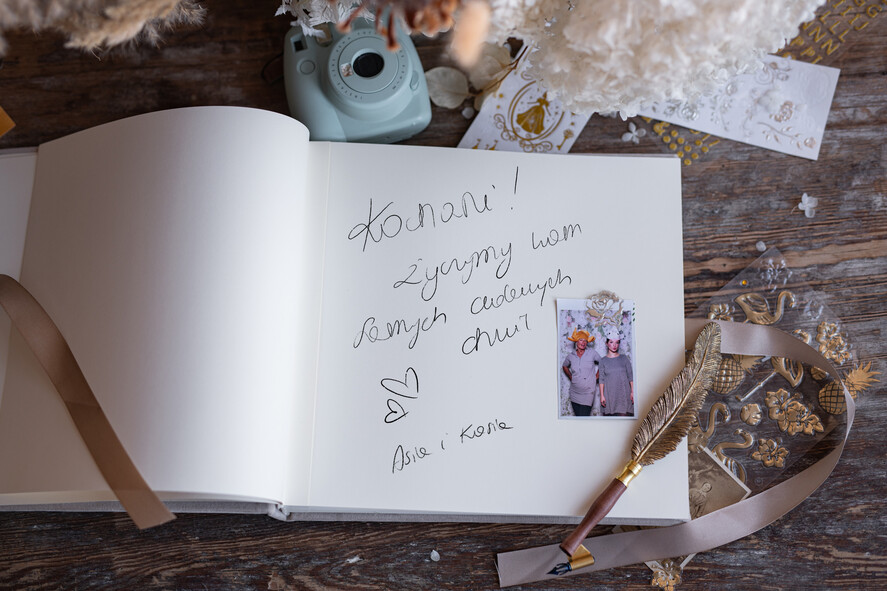 Kochani!
Życzymy Wam
samych cudownych
chwil
Asia i Kasia